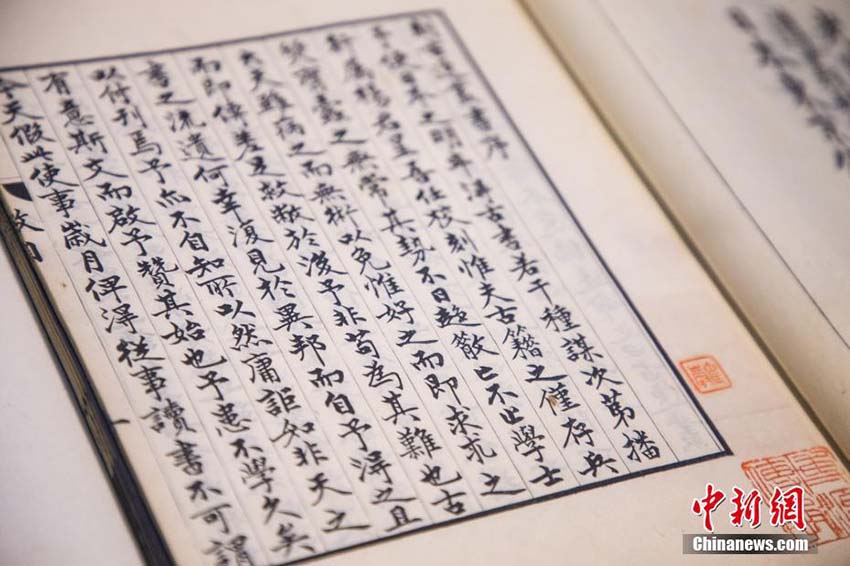 刻古逸叢書序
予使日本之明年得古書若干種謀次第播
行屬楊君星吾任校刻惟夫古籍之僅存兵
燹蠹之無常其勢不日趨散亡不止學士
大夫雖病之而無術以免惟好之而即求求之
而即傳差足救敝於後予非苟為其難也古
書之流遺何幸復見於異邦而自予得之且
以付刊焉予亦不自知所以然庸詎知非天之
有意斯文而啟予贊其始也予患不學久矣
今天假此使事歲月俾得從事讀書不可謂
中新网
Chinanews.com